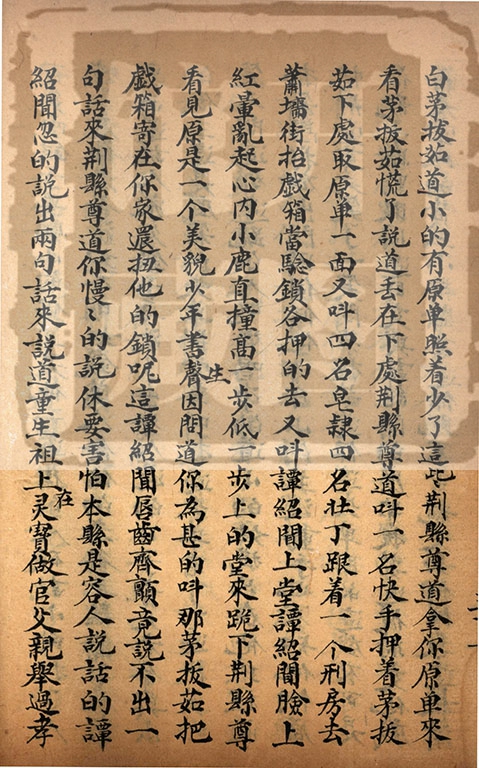 白茅拔茹道小的有原单照着少了這些荆縣尊道拿你原单來
看茅拔茹慌了説道丢在下處荆縣尊道呌一名快手押着茅拔
茹下處取原单一面又呌四名皂隸四名壮丁跟着一个刑房去
蕭墻街抬戲箱當驗鎖各押的去又呌譚紹聞上堂譚紹聞臉上
紅暈亂起心内小鹿直撞髙一步低一步上的堂來跪下荆縣尊
看見原是一个美貌少年書聲生因問道你為甚的呌那茅拔茹把
戲箱寄在你家還扭他的鎖呢這譚紹聞唇齒齊顫竟説不出一
句話來荆縣尊道你慢〻的説休要害怕本縣是容人説話的譚
紹聞忽的説出兩句話來説道童生祖上在灵寳做官父親舉過孝